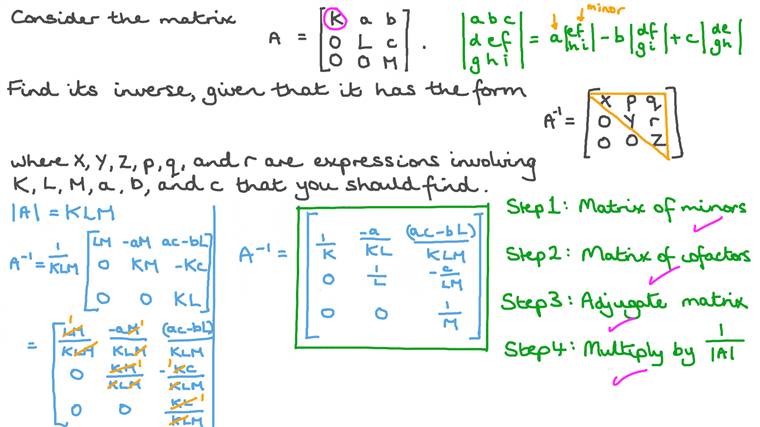 Consider the matrix
A = [K a b
0 L c
0 0 M].
minor
|a b c
d e f
g h i| = a|ef hi| - b|df gi| + c|de gh|
Find its inverse, given that it has the form
A⁻¹ = [X p q
0 Y r
0 0 Z]
where X, Y, Z, p, q, and r are expressions involving
K, L, M, a, b, and c that you should find.
|A| = KLM
A⁻¹ = 1/KLM [LM -aM ac-bL
0 KM -Kc
0 0 KL]
= [LM/KLM -aM/KLM (ac-bL)/KLM
0 KM/KLM -Kc/KLM
0 0 KL/KLM]
A⁻¹ = [1/K -a/KL (ac-bL)/KLM
0 1/L -c/LM
0 0 1/M]
Step 1: Matrix of minors
Step 2: Matrix of cofactors
Step 3: Adjugate matrix
Step 4: Multiply by 1/|A|